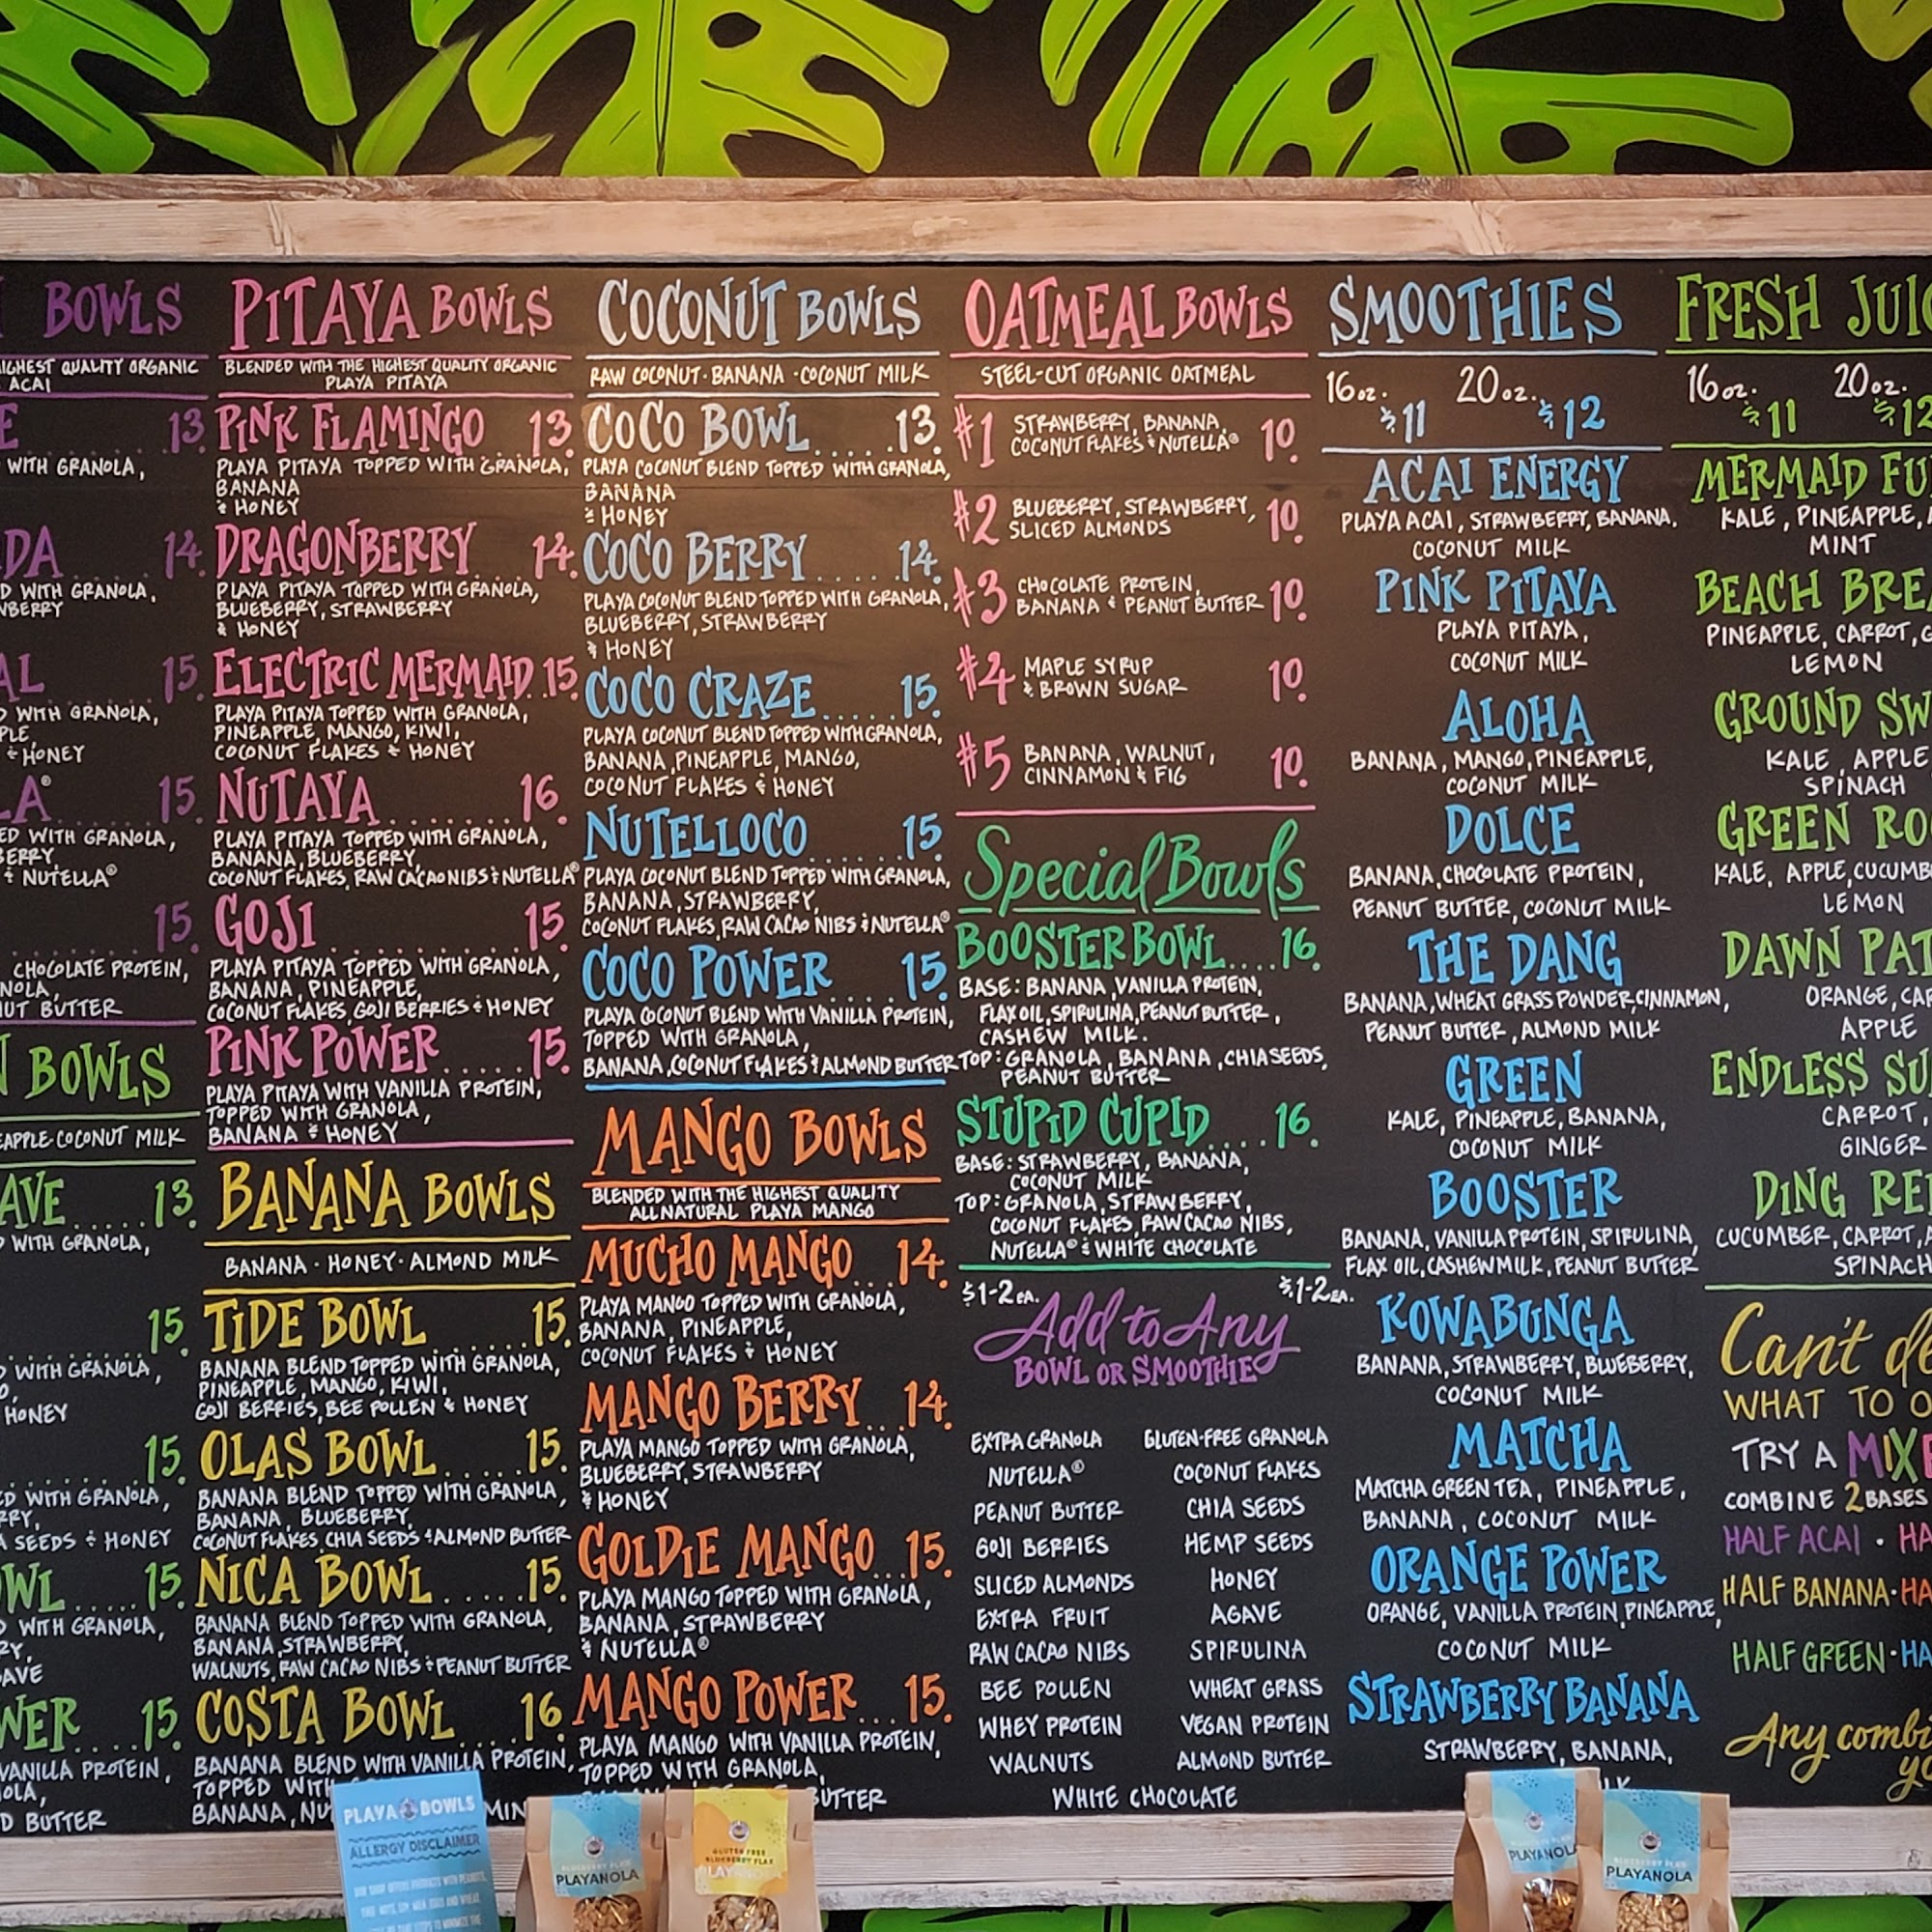 BOWLS
HIGHEST QUALITY ORGANIC
ACAI
13
WITH GRANOLA,
14.
WITH GRANOLA,
15.
WITH GRANOLA,
& HONEY
15.
WITH GRANOLA,
& NUTELLA®
15.
CHOCOLATE PROTEIN,
BUTTER
BOWLS
COCONUT MILK
13.
WITH GRANOLA,
15.
WITH GRANOLA,
HONEY
15.
WITH GRANOLA,
SEEDS & HONEY
15.
WITH GRANOLA,
15.
VANILLA PROTEIN,
BUTTER
PITAYA BOWLS
BLENDED WITH THE HIGHEST QUALITY ORGANIC
PLAYA PITAYA
PINK FLAMINGO 13.
PLAYA PITAYA TOPPED WITH GRANOLA,
BANANA
& HONEY
DRAGONBERRY 14.
PLAYA PITAYA TOPPED WITH GRANOLA,
BLUEBERRY, STRAWBERRY
& HONEY
ELECTRIC MERMAID..15.
PLAYA PITAYA TOPPED WITH GRANOLA,
PINEAPPLE, MANGO, KIWI,
COCONUT FLAKES & HONEY
NUTAYA........16.
PLAYA PITAYA TOPPED WITH GRANOLA,
BANANA, BLUEBERRY,
COCONUT FLAKES, RAW CACAO NIBS & NUTELLA®
GOJI..........15.
PLAYA PITAYA TOPPED WITH GRANOLA,
BANANA, PINEAPPLE,
COCONUT FLAKES, GOJI BERRIES & HONEY
PINK POWER......15.
PLAYA PITAYA WITH VANILLA PROTEIN,
TOPPED WITH GRANOLA,
BANANA & HONEY
BANANA BOWLS
BANANA · HONEY · ALMOND MILK
TIDE BOWL.......15.
BANANA BLEND TOPPED WITH GRANOLA,
PINEAPPLE, MANGO, KIWI,
GOJI BERRIES, BEE POLLEN & HONEY
OLAS BOWL.....15.
BANANA BLEND TOPPED WITH GRANOLA,
BANANA, BLUEBERRY,
COCONUT FLAKES, CHIA SEEDS & ALMOND BUTTER
NICA BOWL......15.
BANANA BLEND TOPPED WITH GRANOLA,
BANANA, STRAWBERRY,
WALNUTS, RAW CACAO NIBS & PEANUT BUTTER
COSTA BOWL....16
BANANA BLEND WITH VANILLA PROTEIN,
TOPPED WITH
BANANA,
COCONUT BOWLS
RAW COCONUT · BANANA · COCONUT MILK
COCO BOWL.....13.
PLAYA COCONUT BLEND TOPPED WITH GRANOLA,
BANANA
& HONEY
COCO BERRY.....14.
PLAYA COCONUT BLEND TOPPED WITH GRANOLA,
BLUEBERRY, STRAWBERRY
& HONEY
COCO CRAZE.....15.
PLAYA COCONUT BLEND TOPPED WITH GRANOLA,
BANANA, PINEAPPLE, MANGO,
COCONUT FLAKES & HONEY
NUTELLOCO......15
PLAYA COCONUT BLEND TOPPED WITH GRANOLA,
BANANA, STRAWBERRY,
COCONUT FLAKES, RAW CACAO NIBS & NUTELLA®
COCO POWER.....15.
PLAYA COCONUT BLEND WITH VANILLA PROTEIN,
TOPPED WITH GRANOLA,
BANANA, COCONUT FLAKES & ALMOND BUTTER
MANGO BOWLS
BLENDED WITH THE HIGHEST QUALITY
ALL NATURAL PLAYA MANGO
MUCHO MANGO...14.
PLAYA MANGO TOPPED WITH GRANOLA,
BANANA, PINEAPPLE,
COCONUT FLAKES & HONEY
MANGO BERRY...14.
PLAYA MANGO TOPPED WITH GRANOLA,
BLUEBERRY, STRAWBERRY
& HONEY
GOLDIE MANGO...15.
PLAYA MANGO TOPPED WITH GRANOLA,
BANANA, STRAWBERRY
& NUTELLA®
MANGO POWER...15.
PLAYA MANGO WITH VANILLA PROTEIN,
TOPPED WITH GRANOLA,
BUTTER
OATMEAL BOWLS
STEEL-CUT ORGANIC OATMEAL
#1 STRAWBERRY, BANANA, 10.
COCONUT FLAKES & NUTELLA®
#2 BLUEBERRY, STRAWBERRY, 10.
SLICED ALMONDS
#3 CHOCOLATE PROTEIN, 10.
BANANA & PEANUT BUTTER
#4 MAPLE SYRUP 10.
& BROWN SUGAR
#5 BANANA, WALNUT, 10.
CINNAMON & FIG
Special Bowls
BOOSTER BOWL....16.
BASE: BANANA, VANILLA PROTEIN,
FLAX OIL, SPIRULINA, PEANUT BUTTER,
CASHEW MILK.
TOP: GRANOLA, BANANA, CHIA SEEDS,
PEANUT BUTTER
STUPID CUPID....16.
BASE: STRAWBERRY, BANANA,
COCONUT MILK
TOP: GRANOLA, STRAWBERRY,
COCONUT FLAKES, RAW CACAO NIBS,
NUTELLA® & WHITE CHOCOLATE
$1-2 EA. $1-2 EA.
Add to Any
BOWL OR SMOOTHIE
EXTRA GRANOLA GLUTEN-FREE GRANOLA
NUTELLA® COCONUT FLAKES
PEANUT BUTTER CHIA SEEDS
GOJI BERRIES HEMP SEEDS
SLICED ALMONDS HONEY
EXTRA FRUIT AGAVE
RAW CACAO NIBS SPIRULINA
BEE POLLEN WHEAT GRASS
WHEY PROTEIN VEGAN PROTEIN
WALNUTS ALMOND BUTTER
WHITE CHOCOLATE
SMOOTHIES
16 oz. 20 oz.
$11 $12
ACAI ENERGY
PLAYA ACAI, STRAWBERRY, BANANA,
COCONUT MILK
PINK PITAYA
PLAYA PITAYA,
COCONUT MILK
ALOHA
BANANA, MANGO, PINEAPPLE,
COCONUT MILK
DOLCE
BANANA, CHOCOLATE PROTEIN,
PEANUT BUTTER, COCONUT MILK
THE DANG
BANANA, WHEAT GRASS POWDER, CINNAMON,
PEANUT BUTTER, ALMOND MILK
GREEN
KALE, PINEAPPLE, BANANA,
COCONUT MILK
BOOSTER
BANANA, VANILLA PROTEIN, SPIRULINA,
FLAX OIL, CASHEW MILK, PEANUT BUTTER
KOWABUNGA
BANANA, STRAWBERRY, BLUEBERRY,
COCONUT MILK
MATCHA
MATCHA GREEN TEA, PINEAPPLE,
BANANA, COCONUT MILK
ORANGE POWER
ORANGE, VANILLA PROTEIN, PINEAPPLE,
COCONUT MILK
STRAWBERRY BANANA
STRAWBERRY, BANANA,
FRESH
16 oz. 20 oz.
$11 $12
MERMAID
KALE, PINEAPPLE,
MINT
BEACH
PINEAPPLE, CARROT,
LEMON
GROUND
KALE, APPLE
SPINACH
GREEN
KALE, APPLE,
LEMON
DAWN
ORANGE,
APPLE
ENDLESS
CARROT,
GINGER
DING
CUCUMBER, CARROT,
SPINACH
Can't
WHAT TO
TRY A
COMBINE 2 BASES
HALF ACAI ·
HALF BANANA ·
HALF GREEN ·
Any
PLAYA BOWLS
ALLERGY DISCLAIMER
PLAYANOLA
GLUTEN FREE
BLUEBERRY FLAX
PLAYANOLA
PLAYANOLA
PLAYANOLA